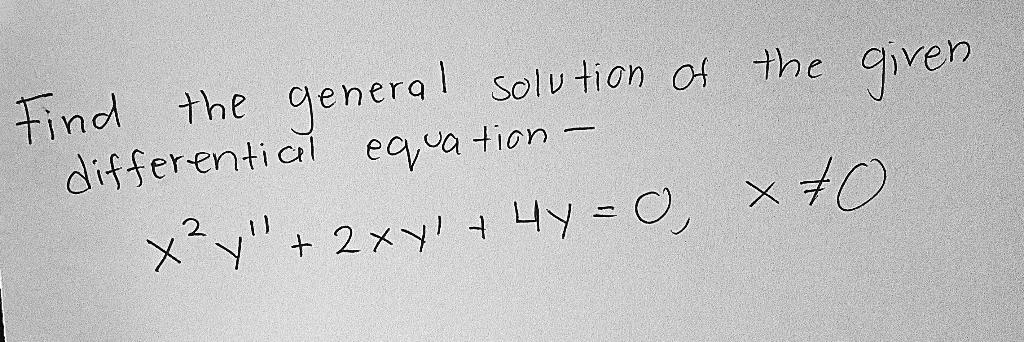 Find the general solution of the given
differential equation -
x²y'' + 2xy' + 4y = 0, x ≠ 0